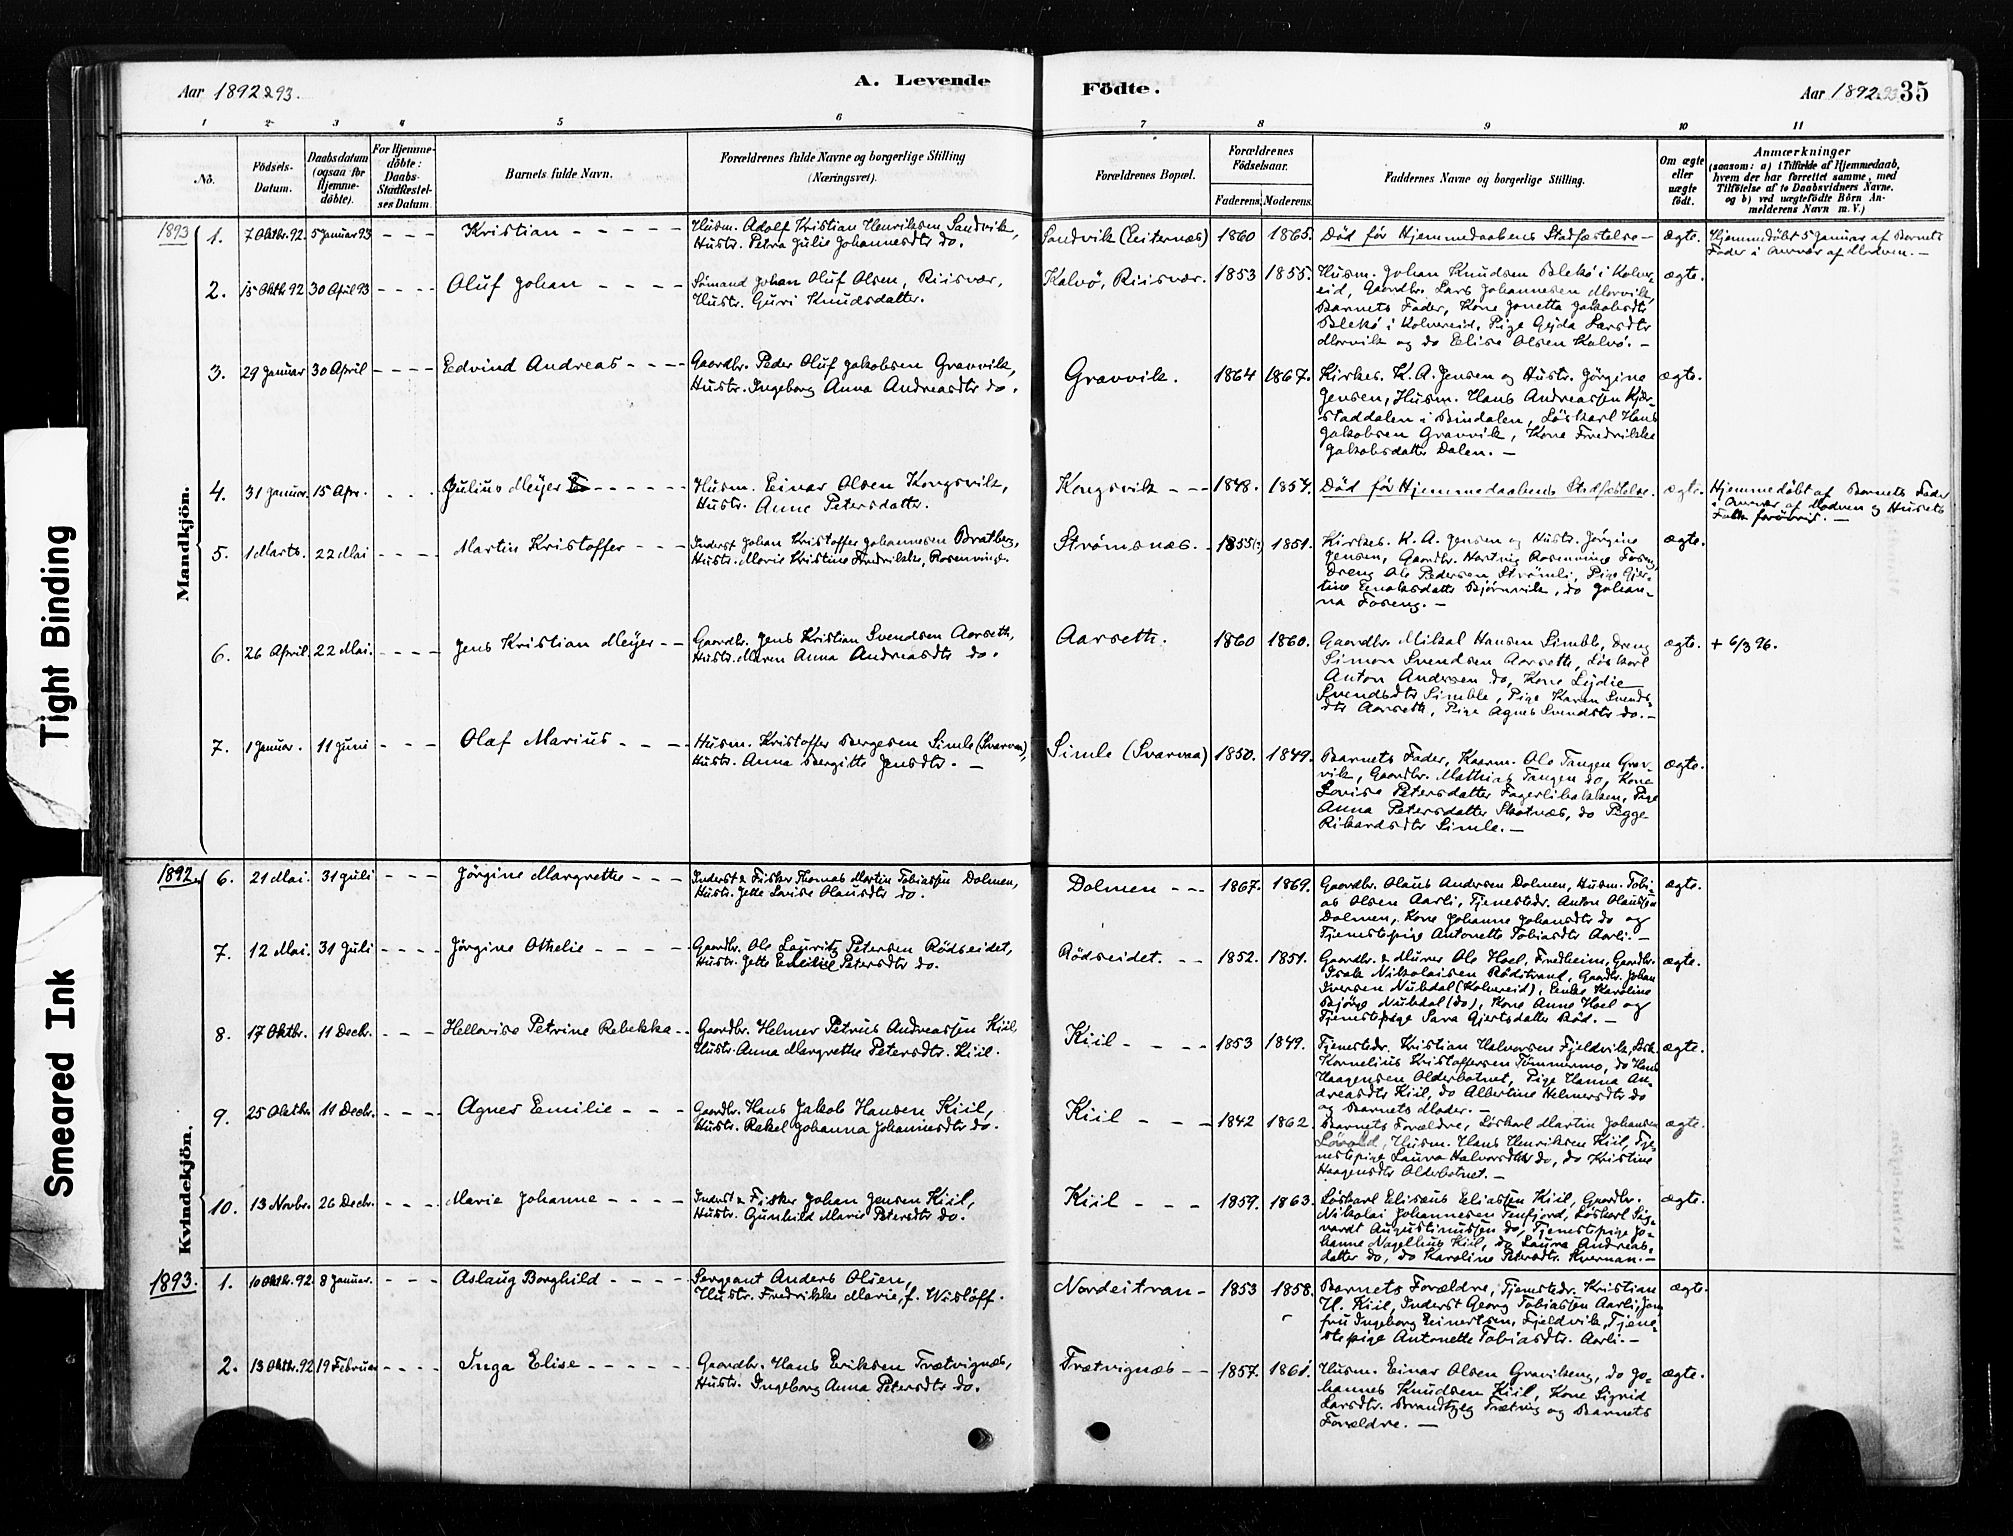 Tight Binding
Smeared Ink
Aar 1892 & 93.
A. Levende
Födte.
Aar 1892 & 93 35
1 2 3 4 5 6 7 8 9 10 11
No.
Födsels-
Datum.
Daabsdatum
(ogsaa for
Hjemme-
döbte).
For Hjemme-
döbte:
Daabs-
Stadfæstel-
ses Datum.
Barnets fulde Navn.
Forældrenes fulde Navne og borgerlige Stilling
(Næringsvei).
Forældrenes Bopæl.
Forældrenes
Födselsaar.
Faderens. Moderens.
Faddernes Navne og borgerlige Stilling.
Om ægte
eller
uægte
födt.
Anmærkninger
(saasom: a) i Tilfælde af Hjemmedaab,
hvem der har forrettet samme, med
Tilföielse af to Daabsvidners Navne.
og b) ved uægtefödte Börn An-
melderens Navn m. V.)
Mandkjön.
1893 1. 7 Oktbr. 92. 5 Januar 93 - - - Kristian - - - - -
Husm. Adolf Kristian Henriksen Sandvik,
Hustr. Petra Julie Johannesdtr do.
Sandvik (Leiternæs) 1860 1865.
Död för Hjemmedaabens Stadfæstelse - ægte.
Hjemmedöbt 5 Januar af Barnets
Fader i Nærvær af Modren. -
2. 15 Oktb. 92 30 April 93 - - - - Oluf Johan - - - -
Sømand Johan Oluf Olsen, Riisvær,
Hustr. Guri Knudsdatter.
Kalvö, Riisvær. 1853 1855.
Husm. Johan Knudsen Blekö i Kolver-
eid, Gaardbr. Lars Johannesen Morvik,
Barnets Fader, Kone Jonetta Jakobsdtr
Blekö i Kolvereid, Pige Gjida Larsdtr
Morvik og do Elise Olsen Kalvö. -
ægte.
3. 29 Januar 30 April - - - - Edvind Andreas - - -
Gaardbr. Peder Oluf Jakobsen Gravvik,
Hustr. Ingeborg Anna Andreasdtr do.
Gravvik. 1864 1867.
Kirkes. K. A. Jensen og Hustr. Jörgine
Jensen, Husm. Hans Andreassen Kjær-
staddalen i Bindalen, Löskarl Hans
Jakobsen Gravvik, Kone Fredrikke
Jakobsdatter Dalen. -
ægte.
4. 31 Januar. 15 Apr. - - - Julius Meyer - - - - -
Husm. Einar Olsen Kongsvik,
Hustr. Anne Petersdatter.
Kongsvik - - 1848. 1857.
Död för Hjemmedaabens Stadfæstelse. ægte.
Hjemmedöbt af Barnets Fader
i Nærvær af Modren og Husets
Folk forövrigt. -
5. 1 Marts. 22 Mai - - - Martin Kristoffer - - -
Inderst Johan Kristoffer Johannesen Bratberg,
Hustr. Marie Kristine Fredrikke, Rosenvinge.
Strömsnæs. - 1855. 1851.
Kirkes. K. A. Jensen og Hustr. Jörgine
Jensen, Gaardbr. Hartvig Rosenvinge Foseng,
Dreng Ole Pedersen Strömli, Pige Gjer-
tine Enoksdatter Bjørnvik, do Johan-
na Foseng. -
ægte.
6. 26 April. 22 Mai. - - - - Jens Kristian Meyer - -
Gaardbr. Jens Kristian Svendsen Aarseth,
Hustr. Maren Anna Andreasdtr do.
Aarseth. 1860 1860.
Gaardbr. Mikal Hansen Simble, Dreng
Simon Svendsen Aarseth, Löskarl
Anton Andersen do, Kone Lydie
Svendsdtr Simble, Pige Karen Svends-
dtr Aarseth, Pige Agnes Svendsdtr do. -
ægte. + 6/3 96.
7. 1 Januar. 11 Juni - - - Olaf Marius - - - -
Husm. Kristoffer Børgesen Simle (Svarvaa),
Hustr. Anna Bergitte Jensdtr. -
Simle (Svarvaa) 1850. 1849.
Barnets Fader, Kaarm. Ole Tangen Grav-
vik, Gaardbr. Mathias Tangen do, Kone
Lovise Petersdatter Fagerlibakken, Pige
Anna Petersdatter Skotnæs, do Pegge
Rikardsdtr Simle. -
ægte.
Kvindekjön.
1892. 6. 21 Mai. 31 Juli - - - Jörgine Margrethe - - -
Inderst & Fisker Thomas Martin Tobiassen Dolmen,
Hustr. Jette Lovise Olausdtr do.
Dolmen - - - 1867. 1869.
Gaardbr. Olaus Andersen Dolmen, Husm. Tobi-
as Olsen Aarli, Tjenestedr. Anton Olaussen
Dolmen, Kone Johanne Johansdtr do og
Tjenestepige Antonette Tobiasdtr Aarli. -
ægte.
7. 12 Mai. 31 Juli - - - - Jörgine Othelie - - - -
Gaardbr. Ole Lauritz Petersen Rödseidet,
Hustr. Jette Emilie Petersdtr do.
Rödseidet. - - 1852. 1851.
Gaardbr. & Murer Ole Hoel, Fredheim, Gaardbr.
Isak Nikolaisen Rödstrand, Gaardbr. Johan
Iversen Nubdal (Kolvereid), Enke Karoline
Bjørge Nubdal (do), Kone Anne Hoel og
Tjenestepige Sara Gjertsdatter Röd. -
ægte.
8. 17 Oktbr. 11 Decbr. - - - Hellovise Petrine Rebekka -
Gaardbr. Helmer Petrus Andreassen Kiil
Hustr. Anna Margrethe Petersdtr. Kiil.
Kiil - - - - 1853 1849.
Tjenestedr. Kristian Halvorsen Fjeldvik, Lösk.
Kornelius Kristoffersen Tömmermo, do Hans
Haagensen Olderbotnet, Pige Hanna An-
dreasdtr Kiil, do Albertine Helmersdtr do
og Barnets Moder. -
ægte.
9. 25 Oktbr. 11 Decbr. - - - - Agnes Emilie - - -
Gaardbr. Hans Jakob Hansen Kiil,
Hustr. Rakel Johanna Johannesdtr do.
Kiil - - - 1842 1862.
Barnets Forældre, Löskarl Martin Johansen
Lövold, Husm. Hans Henriksen Kiil, Tje-
nestepige Laura Halvorsdtr do, do Kristine
Haagensdtr Olderbotnet. -
ægte.
10. 13 Novbr. 26 Decbr. - - - Marie Johanne - - - -
Inderst & Fisker Johan Jensen Kiil,
Hustr. Gunhild Marie Petersdtr do.
Kiil - - - 1859. 1863.
Löskarl Elisæus Eliassen Kiil, Gaardbr.
Nikolai Johannesen Tenfjord, Löskarl Sig-
vardt Augustinussen do, Tjenestepige Jo-
hanne Nagelhus Kiil, do Laura Andreas-
datter do, do Karoline Petersdtr. Kvernan. -
ægte.
1893. 1. 10 Oktbr. 92. 8 Januar. - - - Aslaug Borghild - - - -
Sergeant Anders Olsen,
Hustr. Fredrikke Marie, f. Wislöff.
Nordeitran - 1853 1858.
Barnets Forældre, Tjenestedr. Kristian
H. Kiil, Inderst Georg Tobiassen Aarli, Jom
fru Ingeborg Einertsen, Fjeldvik, Tjene-
stepige Antonette Tobiasdtr. Aarli. -
ægte.
2. 13 Oktbr. 92 19 Februar - - - - Inga Elise - - - - -
Gaardbr. Hans Eriksen Trætvignæs,
Hustr. Ingeborg Anna Petersdtr do.
Trætvignæs - - 1857. 1861.
Husm. Einar Olsen Gravikeng, do Jo-
hannes Knudsen Kiil, Kone Sigrid
Larsdtr. Brandtzeg Trætvig og Barnets
Forældre. -
ægte.